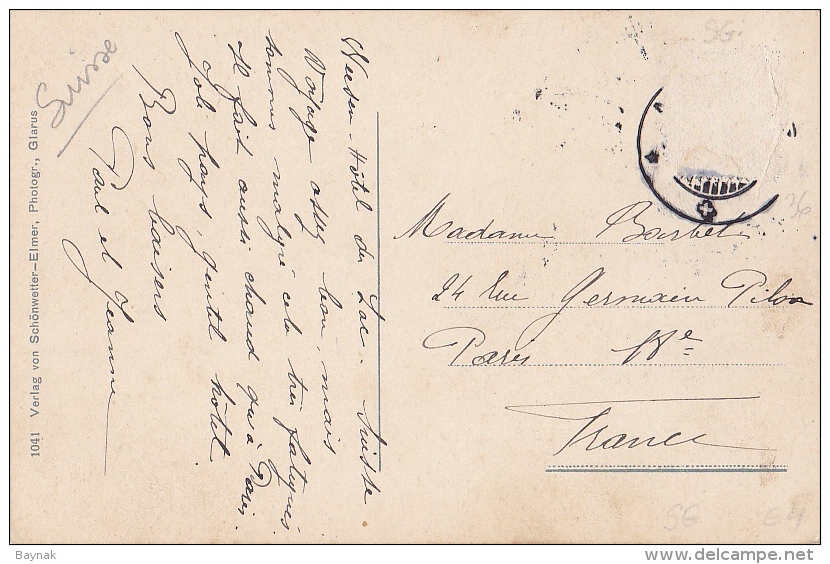 Suisse
Weesen - Hôtel du Lac. Suisse
Voyage assez bon, mais
sommes malgré cela très fatigués
Il fait aussi chaud qu'à Paris.
Joli pays, gentil hôtel.
Bons baisers
Paul et Jeanne
Madame Barbet
24 rue Germain Pilon
Paris 18e
France
1041 Verlag von Schönwetter-Elmer, Photogr., Glarus
SG.
36
SG
E4
Baynak
delcampe.net